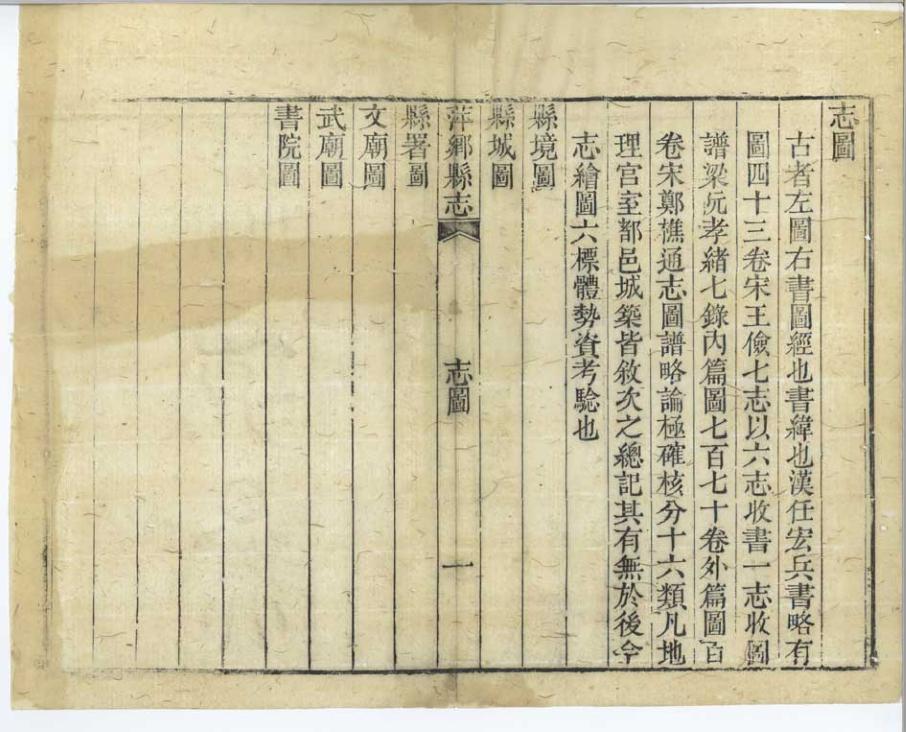 志圖
古者左圖右書圖經也書緯也漢任宏兵書略有
圖四十三卷宋王儉七志以六志收書一志收圖
譜梁阮孝緒七錄內篇圖七百七十卷外篇圖百
卷宋鄭樵通志圖譜略論極確核分十六類凡地
理宫室都邑城築皆敘次之總記其有無於後今
志繪圖六標體勢資考驗也
縣境圖
縣城圖
萍鄉縣志
志圖
一
縣署圖
文廟圖
武廟圖
書院圖